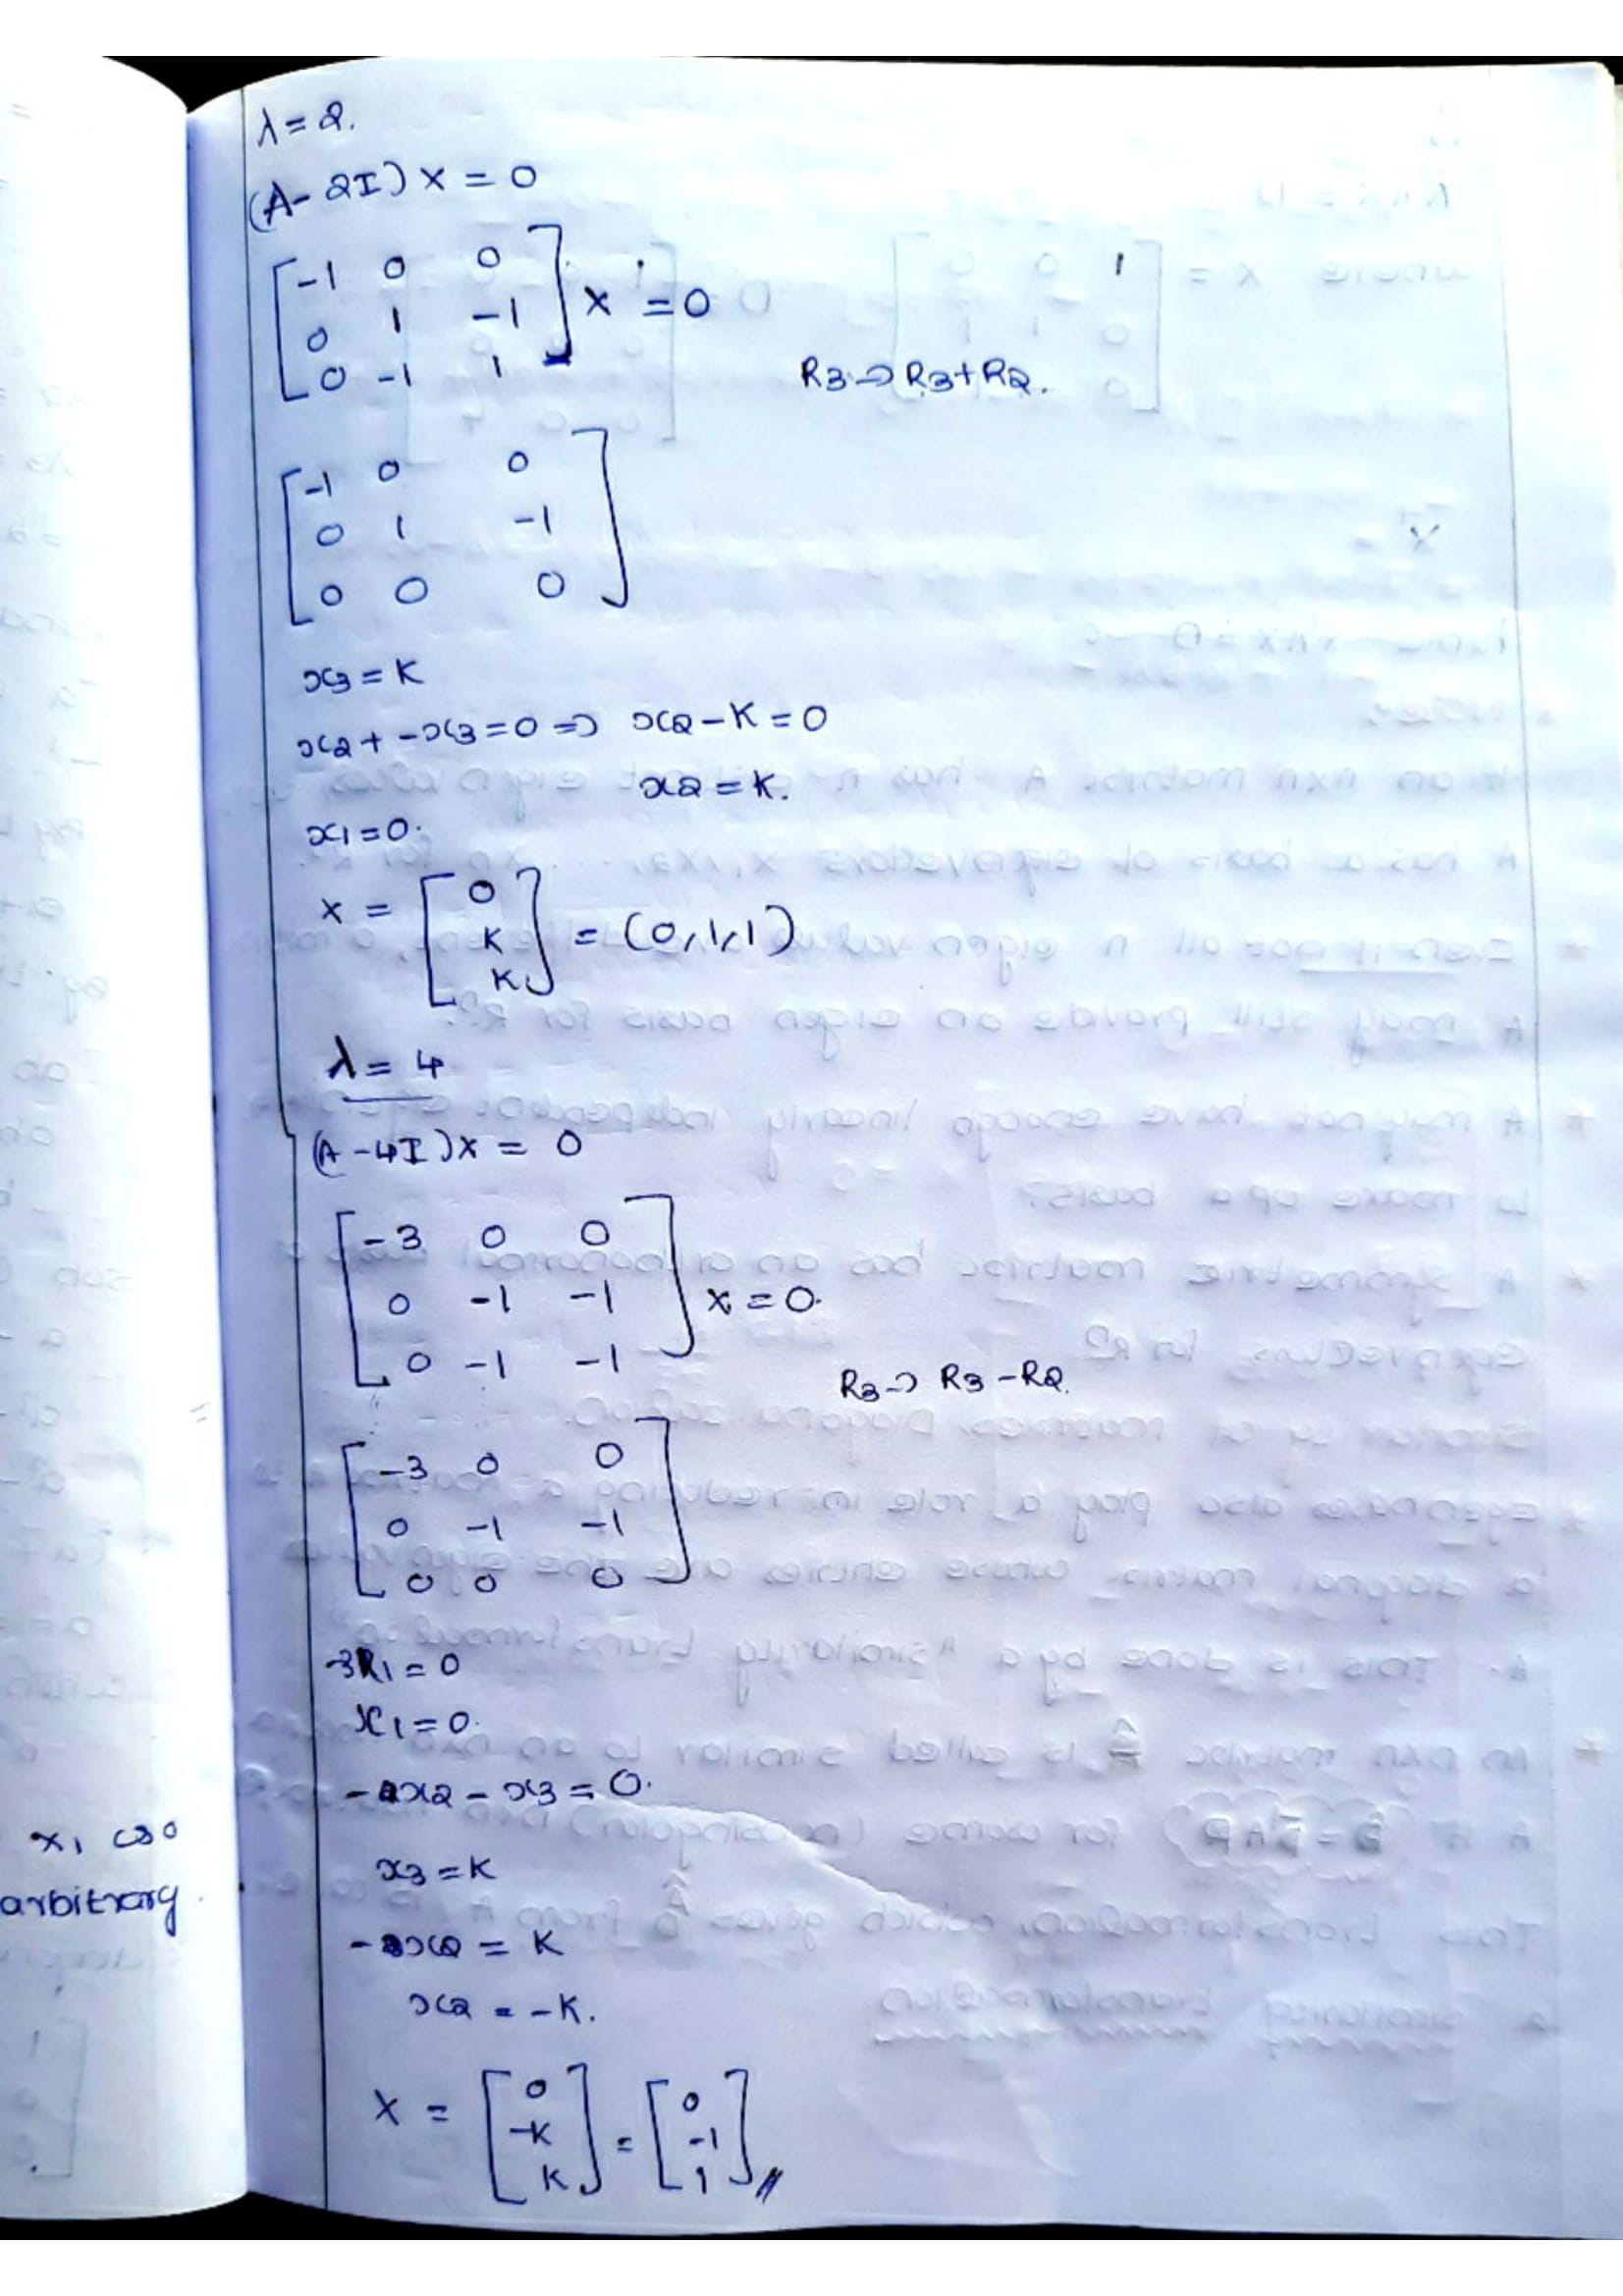 λ = 2.
(A - 2I) x = 0
[ -1 0 0
0 1 -1
0 -1 1 ] x = 0
R3 → R3 + R2.
[ -1 0 0
0 1 -1
0 0 0 ]
x3 = K
x2 + - x3 = 0 => x2 - K = 0
x2 = K.
x1 = 0.
x = [ 0
K
K ] = (0,1,1)
λ = 4
(A - 4I) x = 0
[ -3 0 0
0 -1 -1
0 -1 -1 ] x = 0.
R3 → R3 - R2.
[ -3 0 0
0 -1 -1
0 0 0 ]
-3R1 = 0
x1 = 0.
- x2 - x3 = 0.
x3 = K
- x2 = K
x2 = -K.
x = [ 0
-K
K ] = [ 0
-1
1 ]
x1
arbitrary.